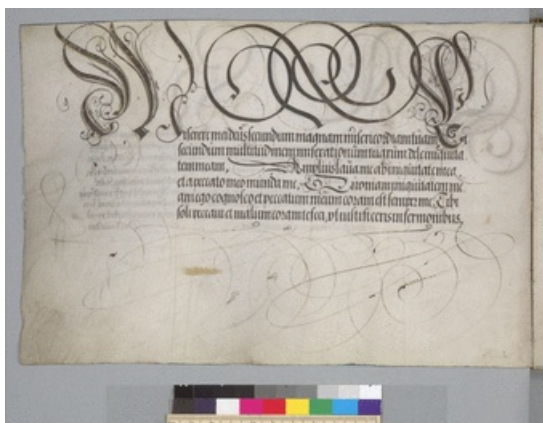 Miserere mei deus secundum magnam misericordiam tuam, Et
secundum multitudinem miserationum tuarum dele iniquita
tem meam, Amplius laua me ab iniquitate mea
et a peccato meo munda me, Quoniam iniquitatem me
am ego cognosco et peccatum meum coram est semper me, Tibi
soli peccaui et malum coram te feci, vt iustificeris in sermonibus,